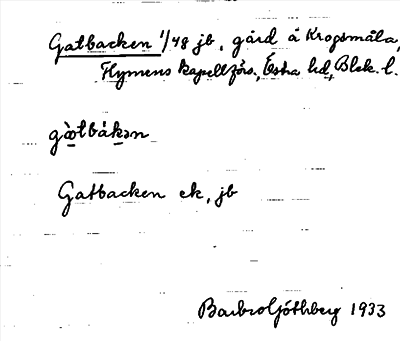 Gatbacken 1/48 jb, gård å Kropsmåla,
Flymens kapellförs., Östra hd, Blek. l.
gòtbákən
Gatbacken ek, jb
Barbro Göthberg 1933